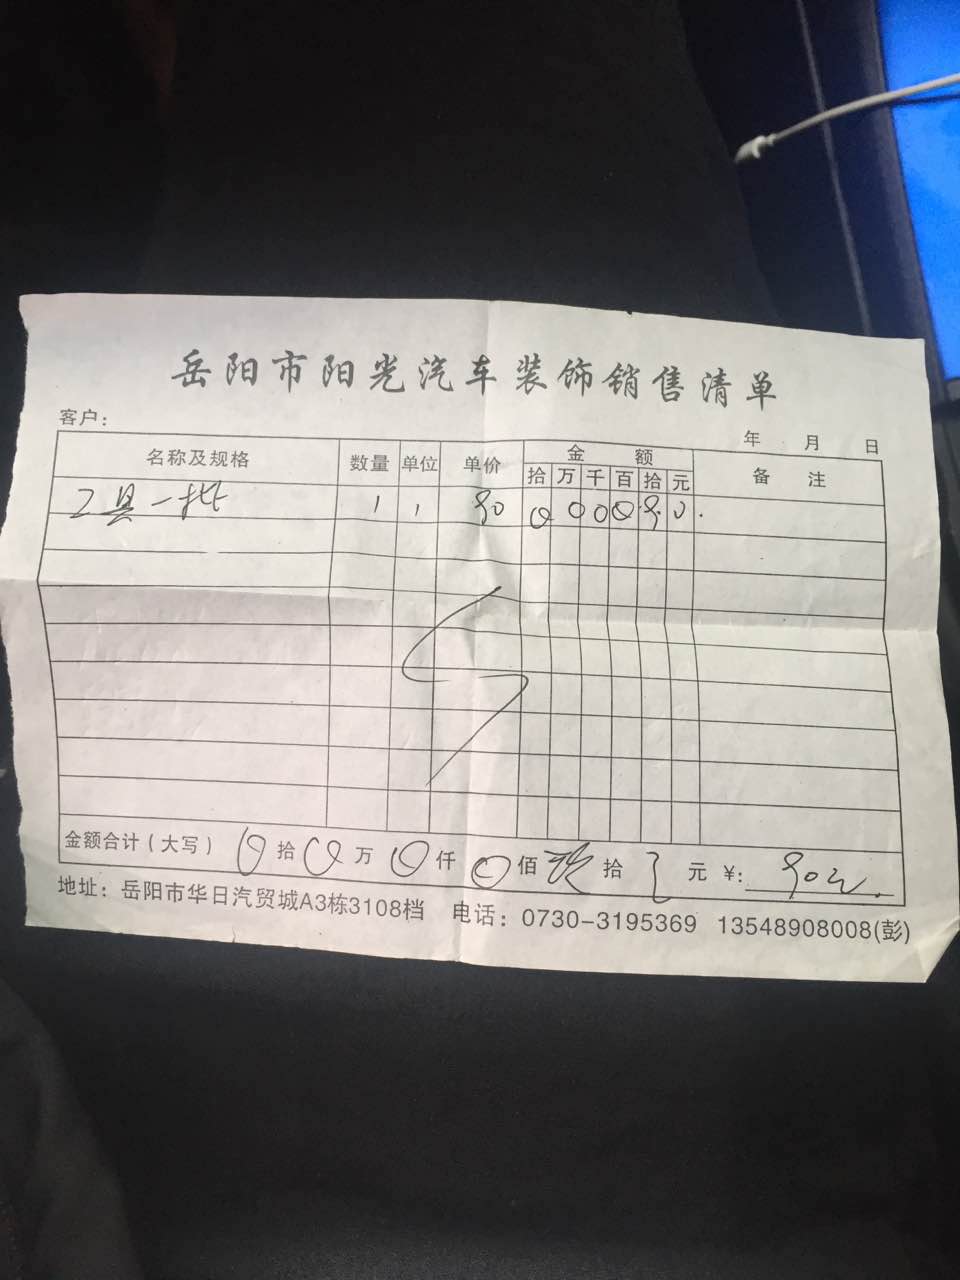 岳阳市阳光汽车装饰销售清单
客户： 年 月 日
名称及规格 数量 单位 单价 金额 备注
拾 万 千 百 拾 元
工具一批 1 1 90 0 0 0 0 9 0
金额合计（大写） 0 拾 0 万 0 仟 0 佰 玖 拾 元 ¥: 90元
地址：岳阳市华日汽贸城A3栋3108档 电话：0730-3195369 13548908008(彭)